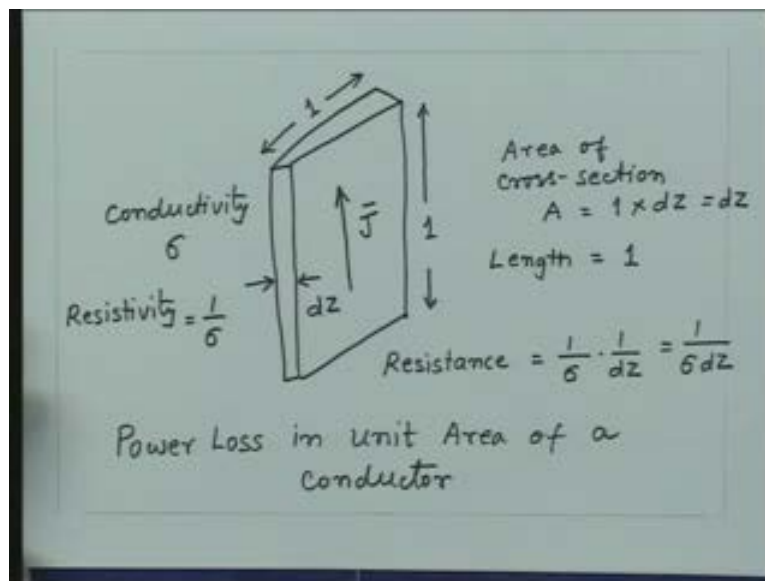 1
Conductivity
σ
Resistivity = 1/σ
dz
J̄
1
Area of
cross-section
A = 1 × dz = dz
Length = 1
Resistance = 1/σ · 1/dz = 1/σdz
Power Loss in Unit Area of a
Conductor